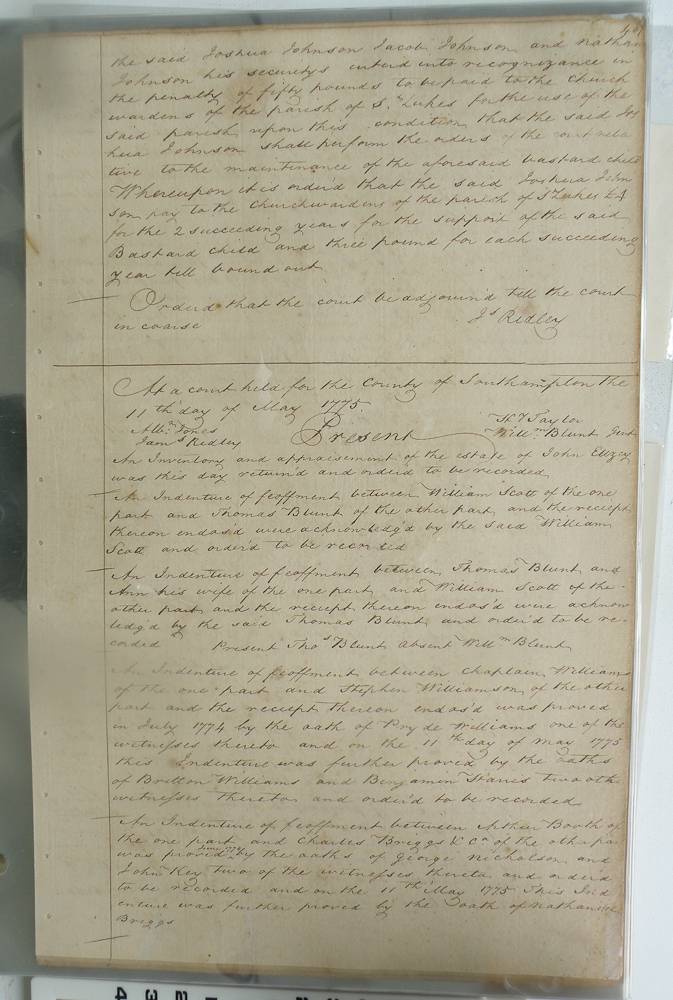 the said Joshua Johnson Jacob Johnson and Nathan
Johnson his securitys enterd into recognizance in
the penalty of fifty pounds to be paid to the Church
wardens of the parish of St Lukes for the use of the
said parish upon this condition that the said Jos
hua Johnson shall perform the orders of the court rela
tive to the maintinance of the aforesaid bastard child
Whereupon it is order'd that the said Joshua John
son pay to the Churchwardins of the parish of St Lukes £4
for the 2 succeeding years for the support of the said
Bastard child and three pound for each succeeding
year till bound out
Orderd that the court be adjournd till the court
in coarse
Js Ridley
At a court held for the County of Southampton the
11th day of May 1775.
Albn Jones
Jams Ridley
Present
Hy Taylor
Willm Blunt Gent
An Inventory and appraisement of the estate of John
was this day return'd and orderd to be recorded
An Indenture of feoffment between William Scott of the one
part and Thomas Blunt of the other part and the reciept
thereon endos'd were acknowledg'd by the said William
Scott and order'd to be recorded
An Indenture of feoffment between Thomas Blunt and
Ann his wife of the one part and William Scott of the
other part and the reciept thereon endos'd were acknow
ledg'd by the said Thomas Blunt and order'd to be re-
corded Present Thos Blunt absent Willm Blunt
An Indenture of feoffment between Chaplain Williams
of the one part and Stephen Williamson of the other
part and the reciept thereon endos'd was proved
in July 1774 by the oath of Pryde Williams one of the
witnesses thereto and on the 11th day of May 1775
this Indenture was further proved by the oaths
of Britton Williams and Benjamin Harris two othe
witnesses thereto and order'd to be recorded
An Indenture of feoffment between Arther Booth of
the one part and Charles Briggs & Co of the other pa
was proved June 1774 by the oaths of George Nicholson and
John Key two of the witnesses thereto and order'd
to be recorded and on the 11th May 1775 This Ind
enture was further proved by the oath of Nathaniel
Briggs
4 3 2